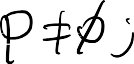 P ≠ ∅ ;